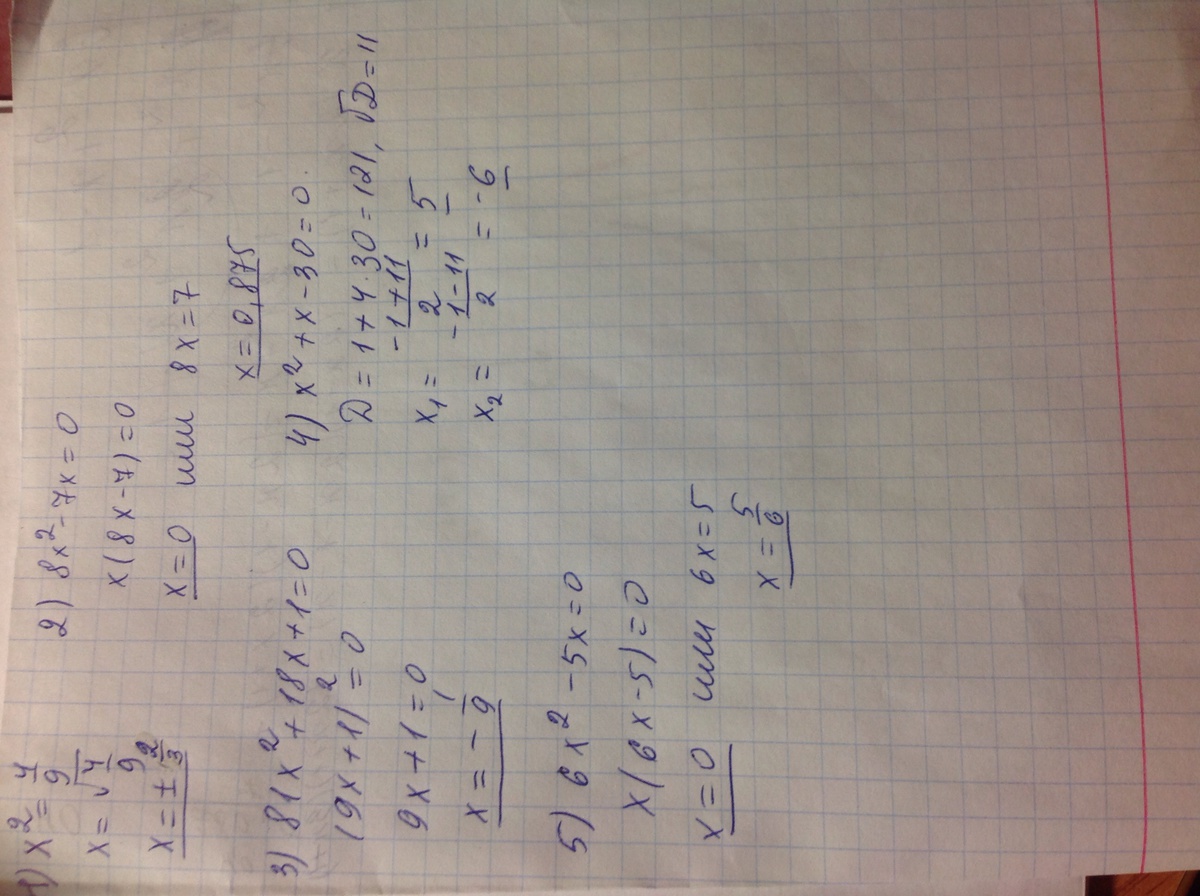 1) x² = 4/9
x = √4/9
x = ± 2/3
2) 8x² - 7x = 0
x(8x - 7) = 0
x = 0 или 8x = 7
x = 0,875
3) 81x² + 18x + 1 = 0
(9x + 1)² = 0
9x + 1 = 0
x = - 1/9
4) x² + x - 30 = 0.
D = 1 + 4·30 = 121, √D = 11
x₁ = -1 + 11/2 = 5
x₂ = -1 - 11/2 = -6
5) 6x² - 5x = 0
x(6x - 5) = 0
x = 0 или 6x = 5
x = 5/6